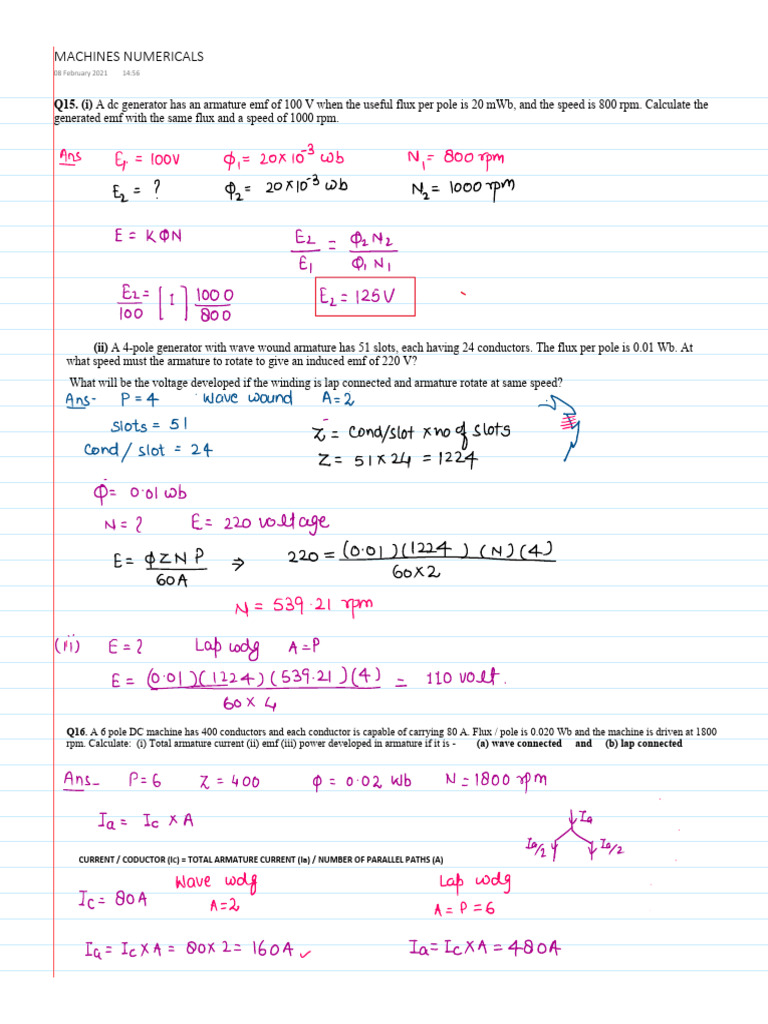 MACHINES NUMERICALS
08 February 2021 14:56
Q15. (i) A dc generator has an armature emf of 100 V when the useful flux per pole is 20 mWb, and the speed is 800 rpm. Calculate the
generated emf with the same flux and a speed of 1000 rpm.
Ans E₁ = 100V Φ₁ = 20×10⁻³ wb N₁ = 800 rpm
E₂ = ? Φ₂ = 20×10⁻³ wb N₂ = 1000 rpm
E = KΦN E₂/E₁ = Φ₂N₂/Φ₁N₁
E₂/100 = [1] 1000/800 E₂ = 125V
(ii) A 4-pole generator with wave wound armature has 51 slots, each having 24 conductors. The flux per pole is 0.01 Wb. At
what speed must the armature to rotate to give an induced emf of 220 V?
What will be the voltage developed if the winding is lap connected and armature rotate at same speed?
Ans- P=4 wave wound A=2
slots = 51
Z = cond/slot × no of slots
cond/slot = 24
Z = 51×24 = 1224
Φ = 0.01 wb
N = ? E = 220 voltage
E = ΦZNP/60A ⇒ 220 = (0.01)(1224)(N)(4)/60×2
N = 539.21 rpm
(iii) E = ? Lap wdg A=P
E = (0.01)(1224)(539.21)(4)/60×4 = 110 volt.
Q16. A 6 pole DC machine has 400 conductors and each conductor is capable of carrying 80 A. Flux / pole is 0.020 Wb and the machine is driven at 1800
rpm. Calculate: (i) Total armature current (ii) emf (iii) power developed in armature if it is - (a) wave connected and (b) lap connected
Ans- P=6 Z = 400 Φ = 0.02 Wb N = 1800 rpm
Ia = Ic × A
Ia
Ia/2 Ia/2
CURRENT / CODUCTOR (Ic) = TOTAL ARMATURE CURRENT (Ia) / NUMBER OF PARALLEL PATHS (A)
Wave wdg Lap wdg
Ic = 80A A=2 A = P = 6
Ia = Ic×A = 80×2 = 160A ✓ Ia = Ic×A = 480A